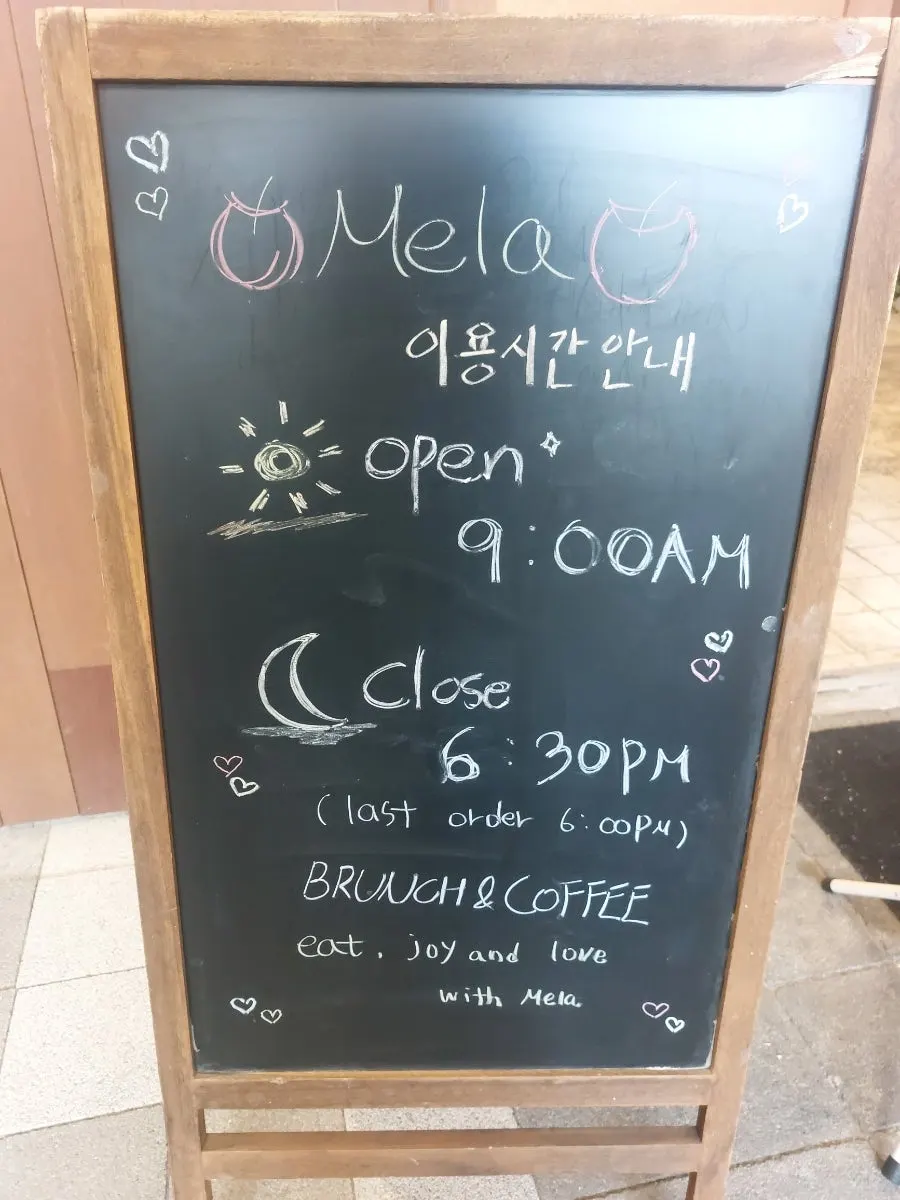 Mela
이용시간 안내
open
9:00AM
close
6:30PM
(last order 6:00PM)
BRUNCH & COFFEE
eat, joy and love
with Mela